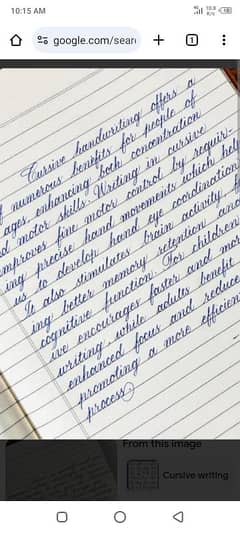 10:15 AM
google.com/sear
1
Cursive handwriting offers a
numerous benefits for people of
ages enhancing both concentration
d motor skills. Writing in cursive
mproves fine motor control by requir-
ing precise hand movements which help
us to develop hand eye coordination
It also stimulates brain activity
ing better memory retention and
cognitive function. For children
ive encourages faster and mor
writing, while adults benefit
enhanced focus and reduce
promoting a more efficien
process
From this image
Cursive writing